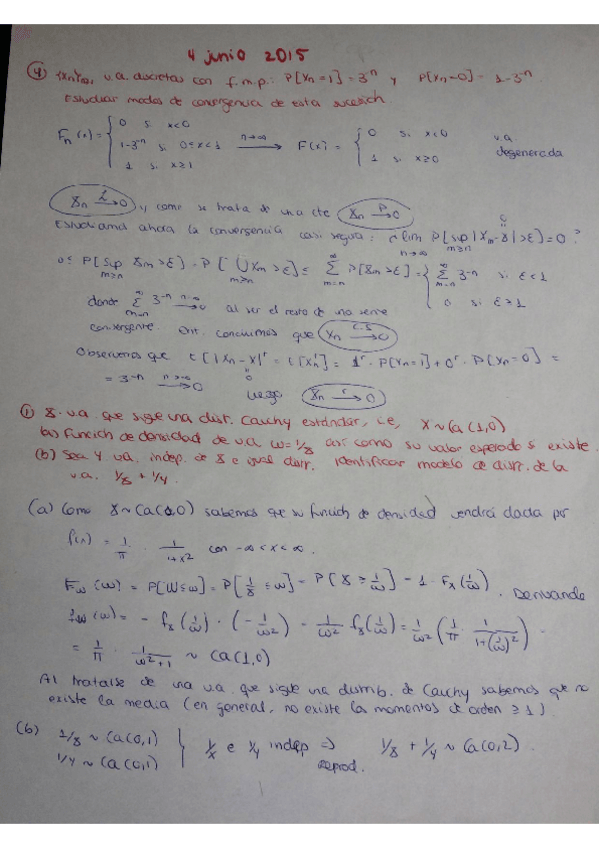 4 junio 2015
④ {Xn}n∈ℕ v.a. discretas con f.m.p.: P[Xn=1]=3⁻ⁿ y P[Xn=0]=1-3⁻ⁿ
Estudiar modos de convergencia de esta sucesión.
Fn(x)= { 0 si x<0 ; 1-3⁻ⁿ si 0≤x<1 ; 1 si x≥1 —n→∞→ F(x)= { 0 si x<0 ; 1 si x≥0 v.a. degenerada
Xn —L→ 0 y como se trata de una cte Xn —P→ 0
Estudiamos ahora la convergencia casi segura: ¿ lim n→∞ P[sup m≥n |Xm-X|>ε]=0?
0≤ P[sup m≥n Xm>ε] = P[⋃ m≥n Xm>ε] ≤ ∑ m=n ∞ P[Xm>ε] = { ∑ m=n ∞ 3⁻ⁿ si ε<1 ; 0 si ε≥1
donde ∑ m=n ∞ 3⁻ⁿ —n→∞→ 0 al ser el resto de una serie
convergente. Ent. concluimos que Xn —c.s→ 0
Observemos que E[|Xn-X|ʳ] = E[Xnʳ] = 1ʳ · P[Xn=1]+0ʳ · P[Xn=0] =
= 3⁻ⁿ —n→∞→ 0 luego Xn —r→ 0
① X v.a. que sigue una dist. Cauchy estándar, i.e, X~Ca(1,0)
(a) Función de densidad de v.a. W=1/X así como su valor esperado si existe.
(b) Sea Y v.a. indep. de X e igual distr. Identificar modelo de distr. de la
v.a. 1/X + 1/Y.
(a) Como X~Ca(0,0) sabemos que su función de densidad vendrá dada por
f(x) = 1/π · 1/(1+x²) con -∞<x<∞.
F_W(w) = P[W≤w] = P[1/X ≤ w] = P[X ≥ 1/w] = 1 - F_X(1/w). Derivando
f_W(w) = - f_X(1/w) · (-1/w²) = 1/w² f_X(1/w) = 1/w² (1/π · 1/(1+(1/w)²))
= 1/π · 1/(w²+1) ~ Ca(1,0)
Al tratarse de una v.a. que sigue una distrib. de Cauchy sabemos que no
existe la media (en general, no existe los momentos de orden ≥1).
(b) 1/X ~ Ca(0,1)
1/Y ~ Ca(0,1) } 1/X e 1/Y indep ⇒ reprod. 1/X + 1/Y ~ Ca(0,2).